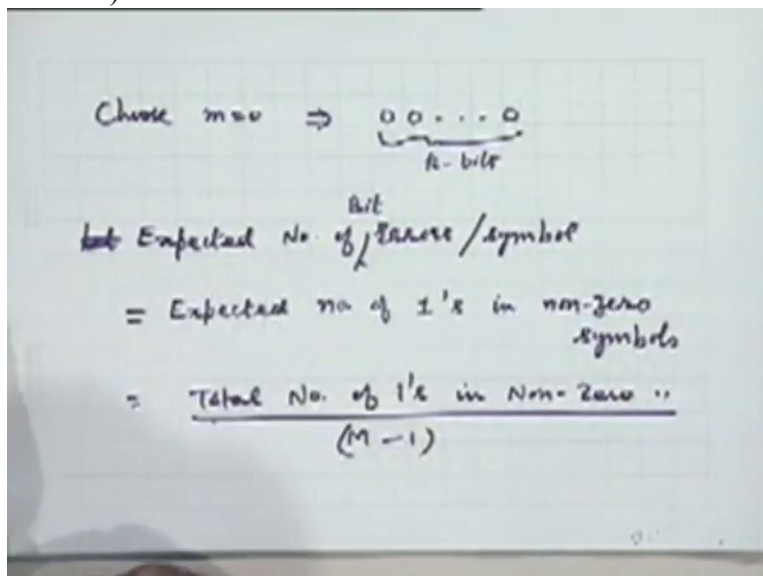 Choose m=0 ⇒ 0 0 . . . 0
k-bits
Bit
Expected No. of Errors / symbol
= Expected no of 1's in non-zero
symbols
= Total No. of 1's in Non-Zero "
(M-1)